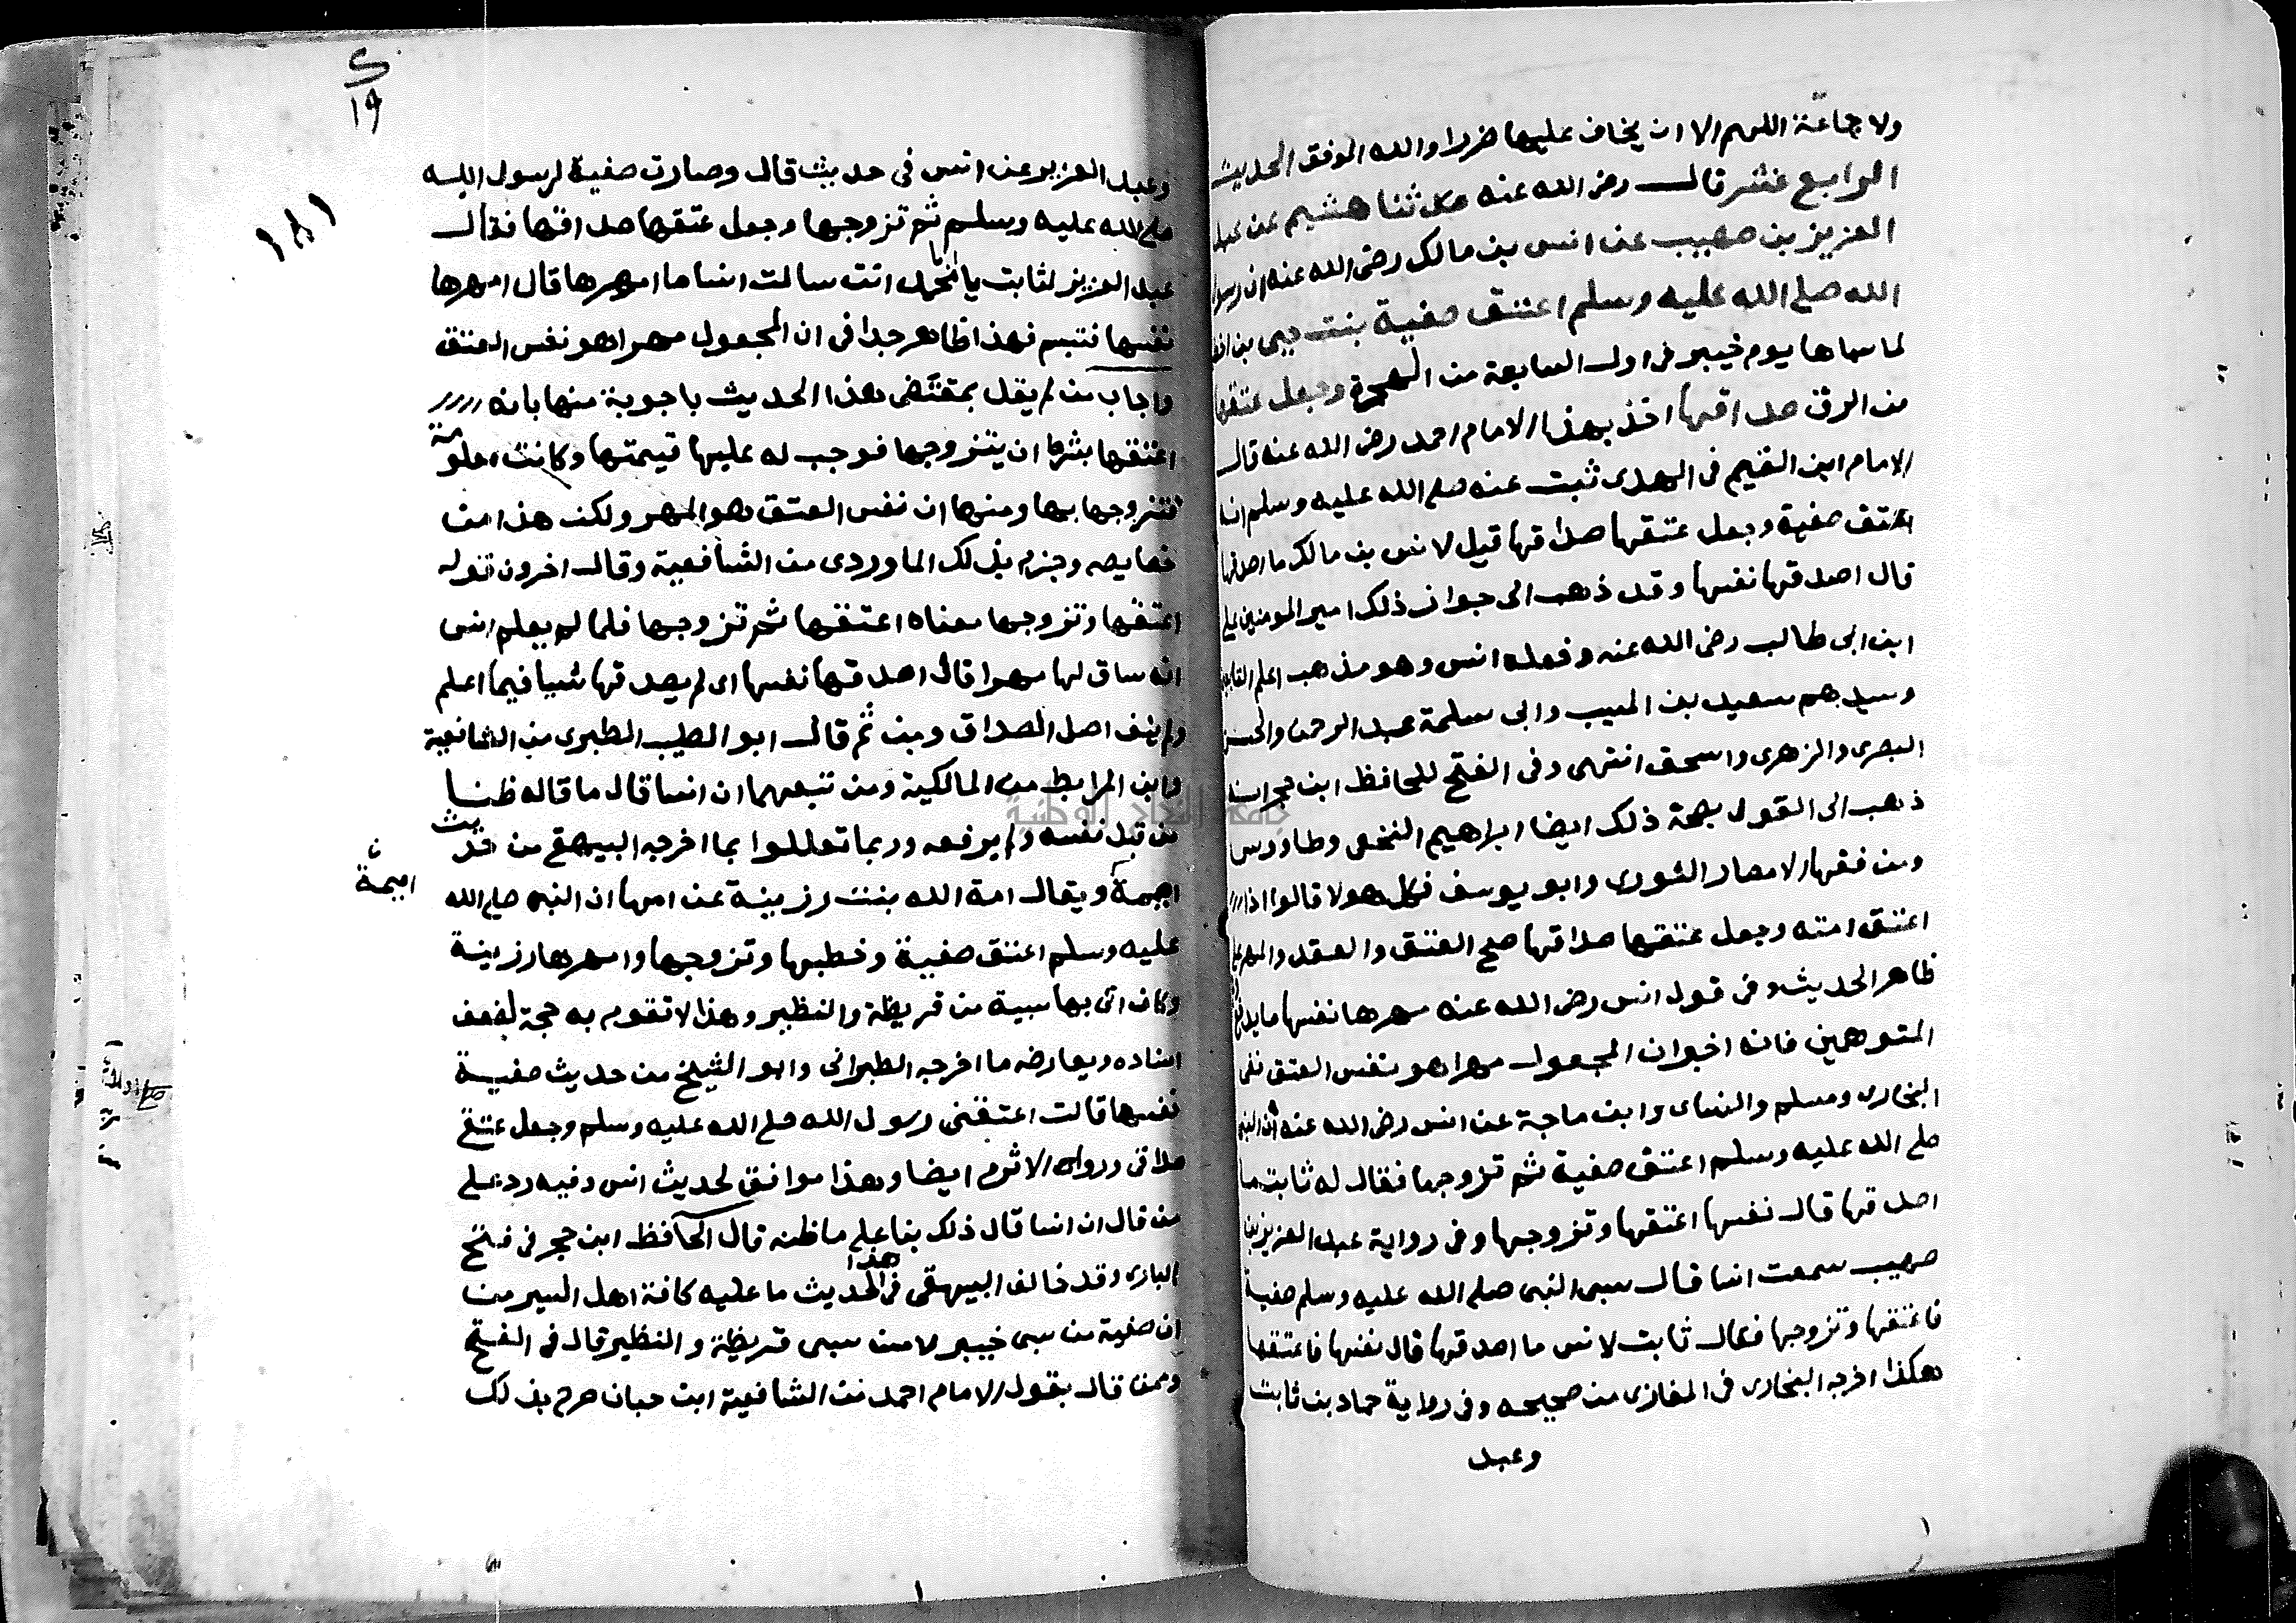 ولا جماعة اللهم الا ان يخاف عليها ضررا والله الموفق الحديث
الرابع عشر قال رضي الله عنه حدثنا هشيم عن عبد
العزيز بن صهيب عن انس بن مالك رضي الله عنه ان رسول
الله صلى الله عليه وسلم اعتق صفية بنت حيي بن
لما سباها يوم خيبر في اول السابعة من الهجرة وجعل عتقها
من الرق صداقها اخذ بهذا الامام احمد رضي الله عنه قال
الامام ابن القيم في الهدى ثبت عنه صلى الله عليه وسلم انه
اعتق صفية وجعل عتقها صداقها قيل لانس بن مالك ما اصدقها
قال اصدقها نفسها وقد ذهب الى جواز ذلك امير المومنين علي
ابن ابي طالب رضي الله عنه وفعله انس وهو مذهب اعلم التابعين
وسيدهم سعيد بن المسيب وابى سلمة عبد الرحمن والحسن
البصري والزهري واسحق انتهى وفي الفتح للحافظ ابن حجر انه
ذهب الى القول بصحة ذلك ايضا ابراهيم النخعي وطاووس
ومن فقها الامصار الثوري وابو يوسف فكل هولا قالوا اذا
اعتق امته وجعل عتقها صداقها صح العتق والعقد والمهر على
ظاهر الحديث وفي قول انس رضي الله عنه مهرها نفسها ما يدفع
المتوهمين فانه اخبر ان المجعول مهرا هو نفس العتق ففي
البخاري ومسلم والنساي وابن ماجة عن انس رضي الله عنه ان النبي
صلى الله عليه وسلم اعتق صفية ثم تزوجها فقال له ثابت ما
اصدقها قال نفسها اعتقها وتزوجها وفي رواية عبد العزيز بن
صهيب سمعت انسا قال سبى النبي صلى الله عليه وسلم صفية
فاعتقها وتزوجها فقال ثابت لانس ما اصدقها قال نفسها فاعتقها
هكذا اخرجه البخاري في المغازي من صحيحه وفي رواية حماد بن ثابت
وعبد
2
19
181
وعبد العزيز عن انس في حديث قال وصارت صفية لرسول الله
صلى الله عليه وسلم ثم تزوجها وجعل عتقها صداقها فقال
عبد العزيز لثابت يا ابا محمد انت سالت انسا ما امهرها قال امهرها
نفسها فتبسم فهذا ظاهر جدا في ان المجعول مهرا هو نفس العتق
واجاب من لم يقل بمقتضى هذا الحديث باجوبة منها بانه
اعتقها بشرط ان يتزوجها فوجب له عليها قيمتها وكانت معلومة
فتزوجها بها ومنها ان نفس العتق هو المهر ولكن هذا من
خصايصه وجزم بذلك الماوردي من الشافعية وقال اخرون قوله
اعتقها وتزوجها معناه اعتقها ثم تزوجها فلما لم يعلم انس
انه ساق لها مهرا قال اصدقها نفسها اى لم يصدقها شيا فيما اعلم
ولم ينف اصل الصداق ومن ثم قال ابو الطيب الطبري من الشافعية
وابن المرابط من المالكية ومن تبعهما ان انسا قال ما قاله ظنا
من قبل نفسه ولم يرفعه وربما تعللوا بما اخرجه البيهقي من حديث
اميمة ويقال امة الله بنت رزينة عن امها ان النبي صلى الله
اميمة
ن
عليه وسلم اعتق صفية وخطبها وتزوجها وامهرها رزينة
وكان اتى بها سبية من قريظة والنظير وهذا لا تقوم به حجة لضعف
اسناده ويعارضه ما اخرجه الطبراني وابو الشيخ من حديث صفية
نفسها قالت اعتقني رسول الله صلى الله عليه وسلم وجعل عتقي
صداقي ورواه الاثرم ايضا وهذا موافق لحديث انس وفيه رد على
من قال ان انسا قال ذلك بنا على ما ظنه قال الحافظ ابن حجر في فتح
الباري وقد خالف البيهقي في هذا الحديث ما عليه كافة اهل السير من
ان صفية من سبى خيبر لا من سبى قريظة والنظير قال في الفتح
وممن قال بقول الامام احمد من الشافعية ابن حبان صرح بذلك
جامعة النجاح الوطنية